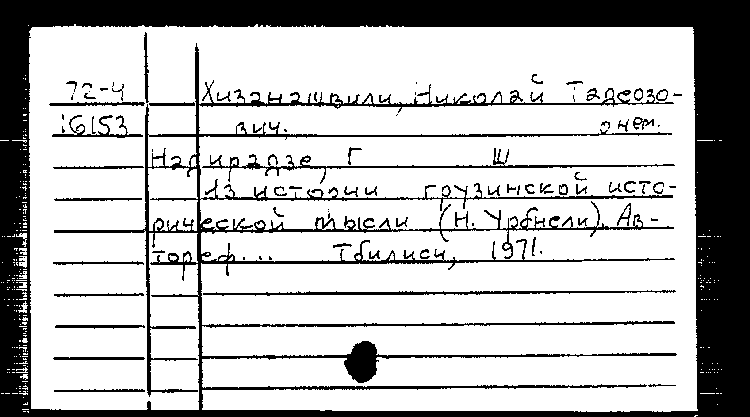 72-4 Хизанашвили, Николай Тадеозо-
16153 вич. о нем.
Надирадзе, Г Ш
Из истории грузинской исто-
рической мысли (Н. Урбнели). Ав-
тореф... Тбилиси, 1971.